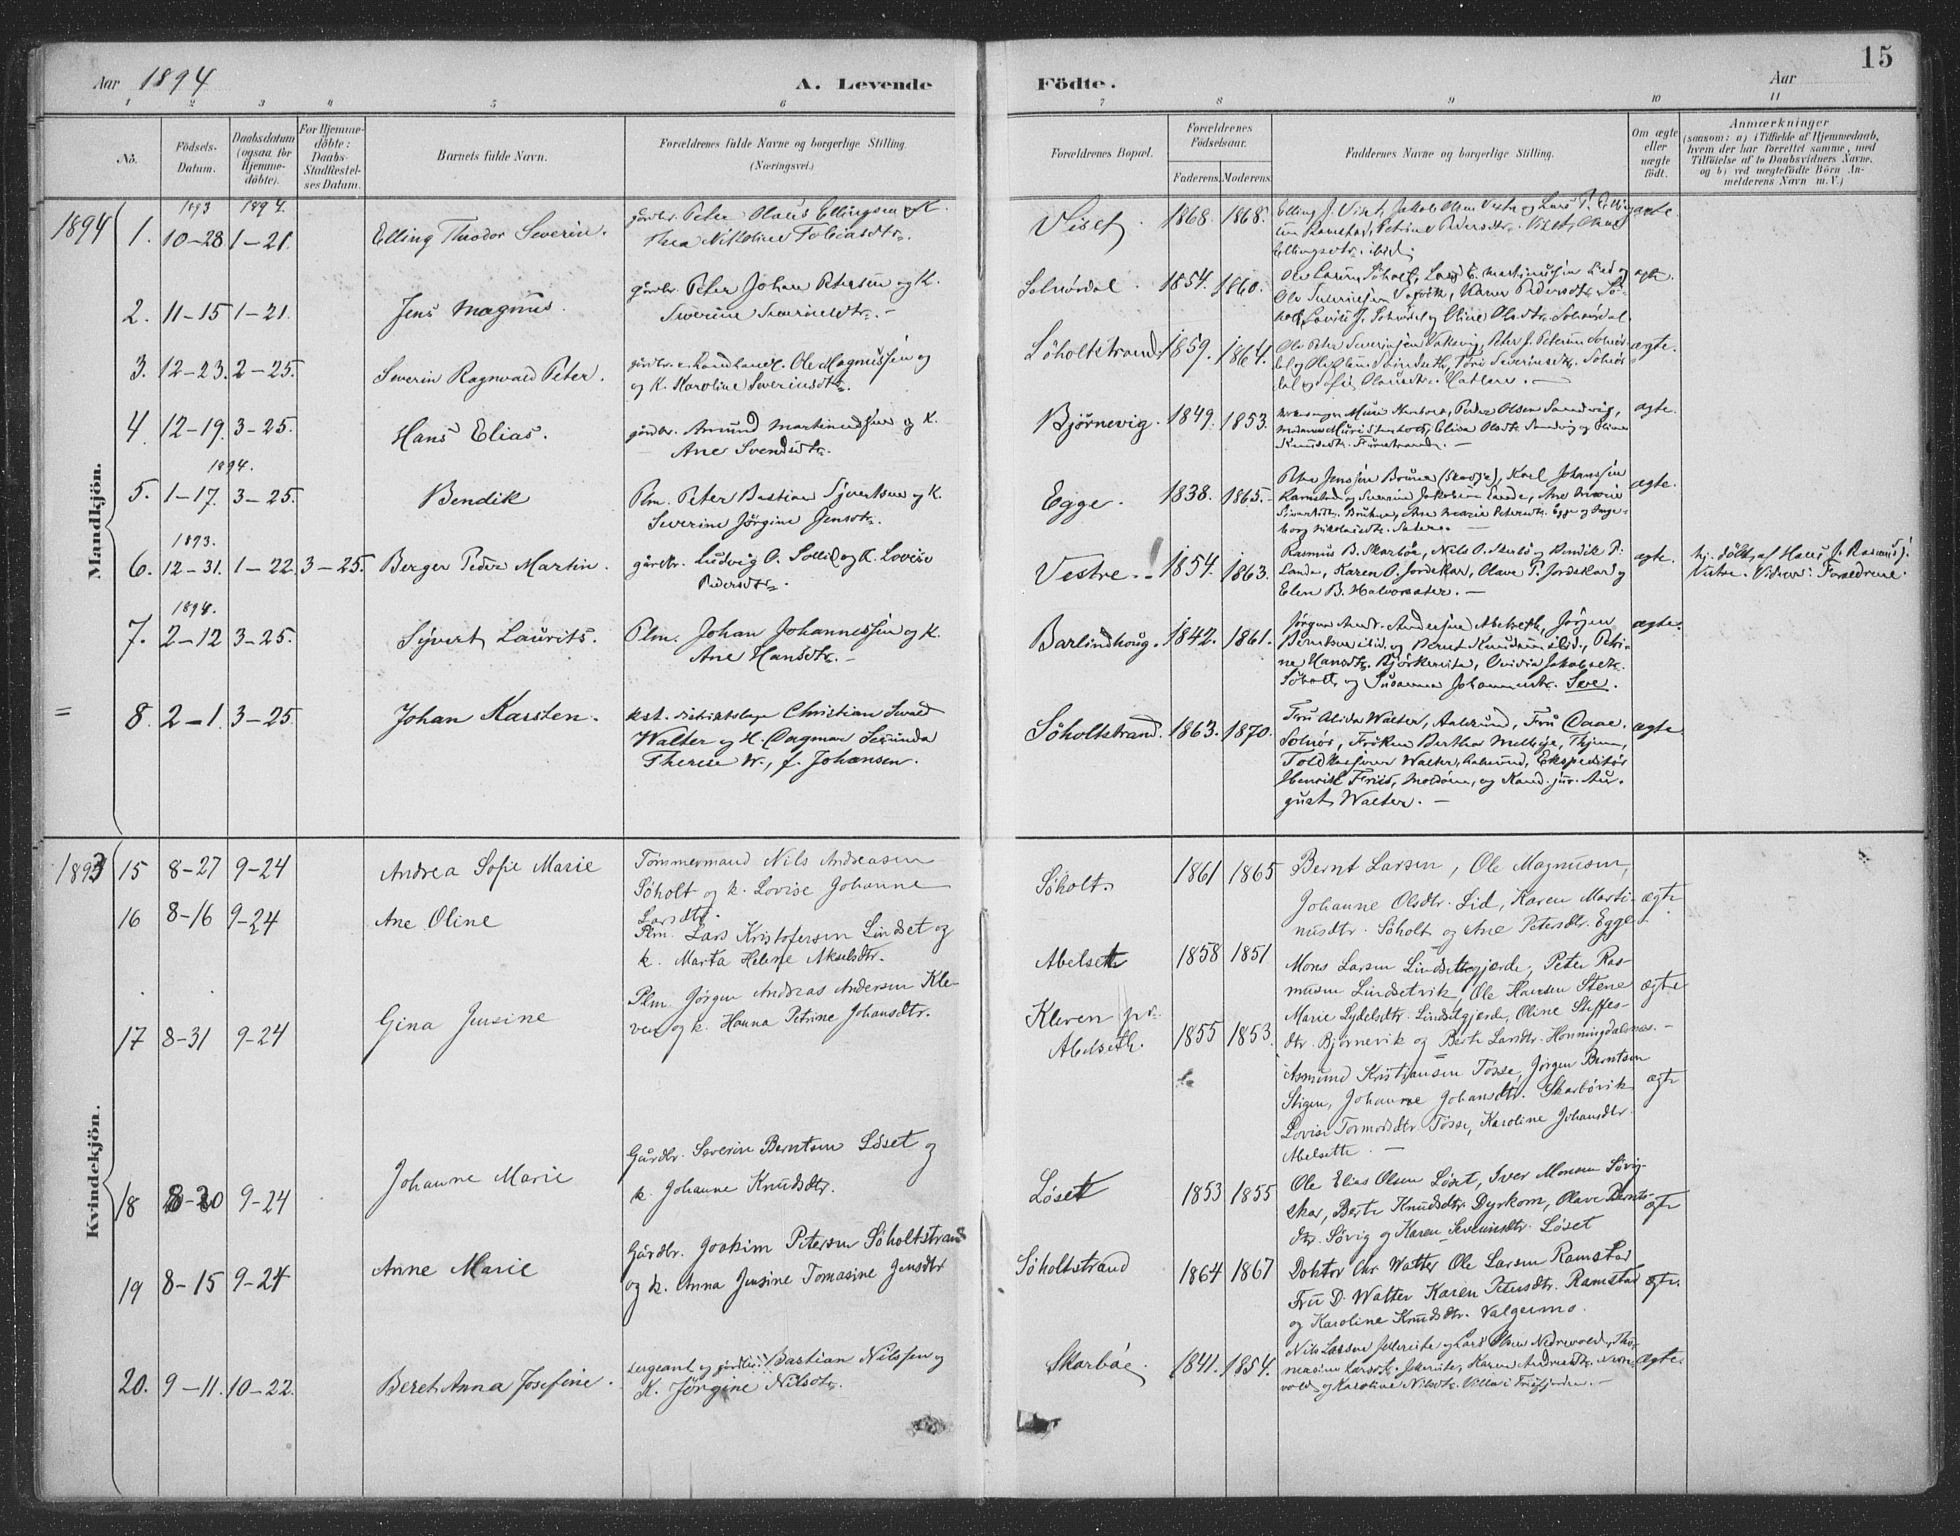 Aar 1894
A. Levende
Födte.
Aar
15
1 2 3 4 5 6 7 8 9 10 11
No.
Födsels-Datum.
Daabsdatum (ogsaa for Hjemmedöbte).
For Hjemmedöbte: Daabs-Stadfæstelses Datum.
Barnets fulde Navn.
Forældrenes fulde Navne og borgerlige Stilling.
(Næringsvei.)
Forældrenes Bopæl.
Forældrenes Födselsaar.
Faderens. Moderens.
Faddernes Navne og borgerlige Stilling.
Om ægte eller uægte födt.
Anmærkninger
(saasom: a) i Tilfælde af Hjemmedaab, hvem der har forrettet samme, med Tilföielse af to Daabsvidners Navne, og b) ved uægtefödte Börn Anmelderens Navn m. V.)
Mandkjön.
1894 1. 1893 10-28 1894. 1-21. Elling Theodor Severin. gårdbr. Peter Olaus Ellingsen og K.
Thea Nikoline Tobiasdtr. Viset. 1868. 1868. Elling J. Viset, Jakob Olsen Vestre og Lars P. ægte.
Ramstad, Petrine Pedersdtr. Viset,
Ellingsdtr. ibid.
2. 11-15 1-21. Jens Magnus. gårdbr. Peter Johan Petersen og K.
Severine Severinsdtr. Solnørdal. 1854. 1860. ægte.
3. 12-23. 2-25. Severin Ragnvald Peter. gårdbr. & handlende. Ole Magnussen og
og K. Karoline Severinsdtr. Söholtstrand. 1859. 1864. ægte.
4. 12-19. 3-25. Hans Elias. gårdbr. Amund Martinussen og K.
Ane Svendsdtr. Bjørnevig. 1849. 1853. Peder Olsen Sandvig, ægte.
5. 1894. 1-17. 3-25. Bendik Plm. Peter Bastian Syvertsen og K.
Severine Jørgine Jensdtr. Egge. 1838. 1865. Peter Jenssen Bruna (Skodje), Karl Johanssen ægte.
Ramstad og Severin Jakobsen Lande, Ane Marie
Ane Marie Petersdtr. Egge og
6. 1893. 12-31. 1-22. 3-25. Berger Peder Martin. gårdbr. Ludvig O. Sollid og K. Lovise
Pedersdtr. Vestre. 1854. 1863. Rasmus B. Skarbø, Nils O. Skarbø og Bendik P. ægte
Lande, Karen O. Jordskar, Olave P. Jordskar og
Elen B. Halvorsæter. hj. döbt af Hans J. Rasmusj.
Vestre. Vidner: Forældrene.
7. 1894. 2-12 3-25. Syvert Laurits. Plm. Johan Johannessen og K.
Ane Hansdtr. Barlindhoug. 1842. 1861. Jørgen Andr. Andersen Abelseth, Jörgen ægte.
Berntsen ibid. og Bernt Knudsen ibid, Petrine
Hansdtr. Björkevita, Ovidia Jakobsdtr.
Söholt og Susanna Johannesdtr. Sve.
= 8. 2-1. 3-25. Johan Karsten. kst. distriktslæge Christian Sewald
Walter og H. Dagmar Secunda
Therese W., f. Johansen. Söholtstrand. 1863. 1870. Fru Alida Walter, Aalesund, Fru Daae. ægte
Solnör, Frøken Bertha Mellbye, Thjem,
Toldkasserer Walter, Aalesund, Ekspeditör
Henrik Friis, Moldöen, og Kand. jur. August
Walter.
Kvindekjön.
1893 15 8-27 9-24 Andrea Sofie Marie Tømmermand Nils Andreasen
Søholt og k. Lovise Johanne
Larsdtr. Søholt 1861 1865 Bernt Larsen, Ole Magnusen,
Johanne Olsdtr. Lid, Karen Martinusdtr. ægte
Søholt og Ane Petersdtr. Egge.
16 8-16 9-24 Ane Oline Plm. Lars Kristofersen Lindset og
k. Marta Helene Akseldtr. Abelseth 1858 1851 Mons Larsen Lindsetgjerde, Peter Rasmusen
Lindsetvik, Ole Hansen Stene ægte
Marie Lydelsdtr. Lindsetgjerde, Oline Steffesdtr.
Bjørnevik og Berte Larsdtr. Honningdalsnes.
17 8-31 9-24 Gina Jensine Plm. Jørgen Andreas Andersen Kleven
og k. Hanna Petrine Johansdtr. Kleven pr.
Abelseth. 1855 1853. Asmund Kristiansen Tösse, Jørgen Berntsen
Stigen, Johanne Johansdtr. Skarbøvik ægte
Lovise Tormodsdtr. Tösse, Karoline Johansdtr.
Abelseth.
18 8-20 9-24 Johanne Marie Gårdbr. Severin Berntsen Løset og
k. Johanne Knudsdtr. Løset 1853 1855 Ole Elias Olsen Løset, Iver Monsen Søvigskar,
Berte Knudsdtr. Dyrkorn, Olave Berntsdtr. ægte
Søvig og Karen Severinsdtr. Løset
19 8-15 9-24 Anne Marie Gårdbr. Joakim Petersen Søholtstrand
og k. Anna Jensine Tomasine Jensdtr Søholtstrand 1864 1867 Doktor Chr. Walter Ole Larsen Ramstad
Fru D. Walter Karen Petersdtr. Ramstad ægte.
og Karoline Knudsdtr. Valgermo.
20. 9-11. 10-22. Beret Anna Josefine. sergeant og gårdbr. Bastian Nilssen og
K. Jørgine Nilsdtr. Skarbøe. 1841. 1854. Nils Larsen og Lars Nedrevold, ægte.
og Karoline Nilsdtr. Villa i